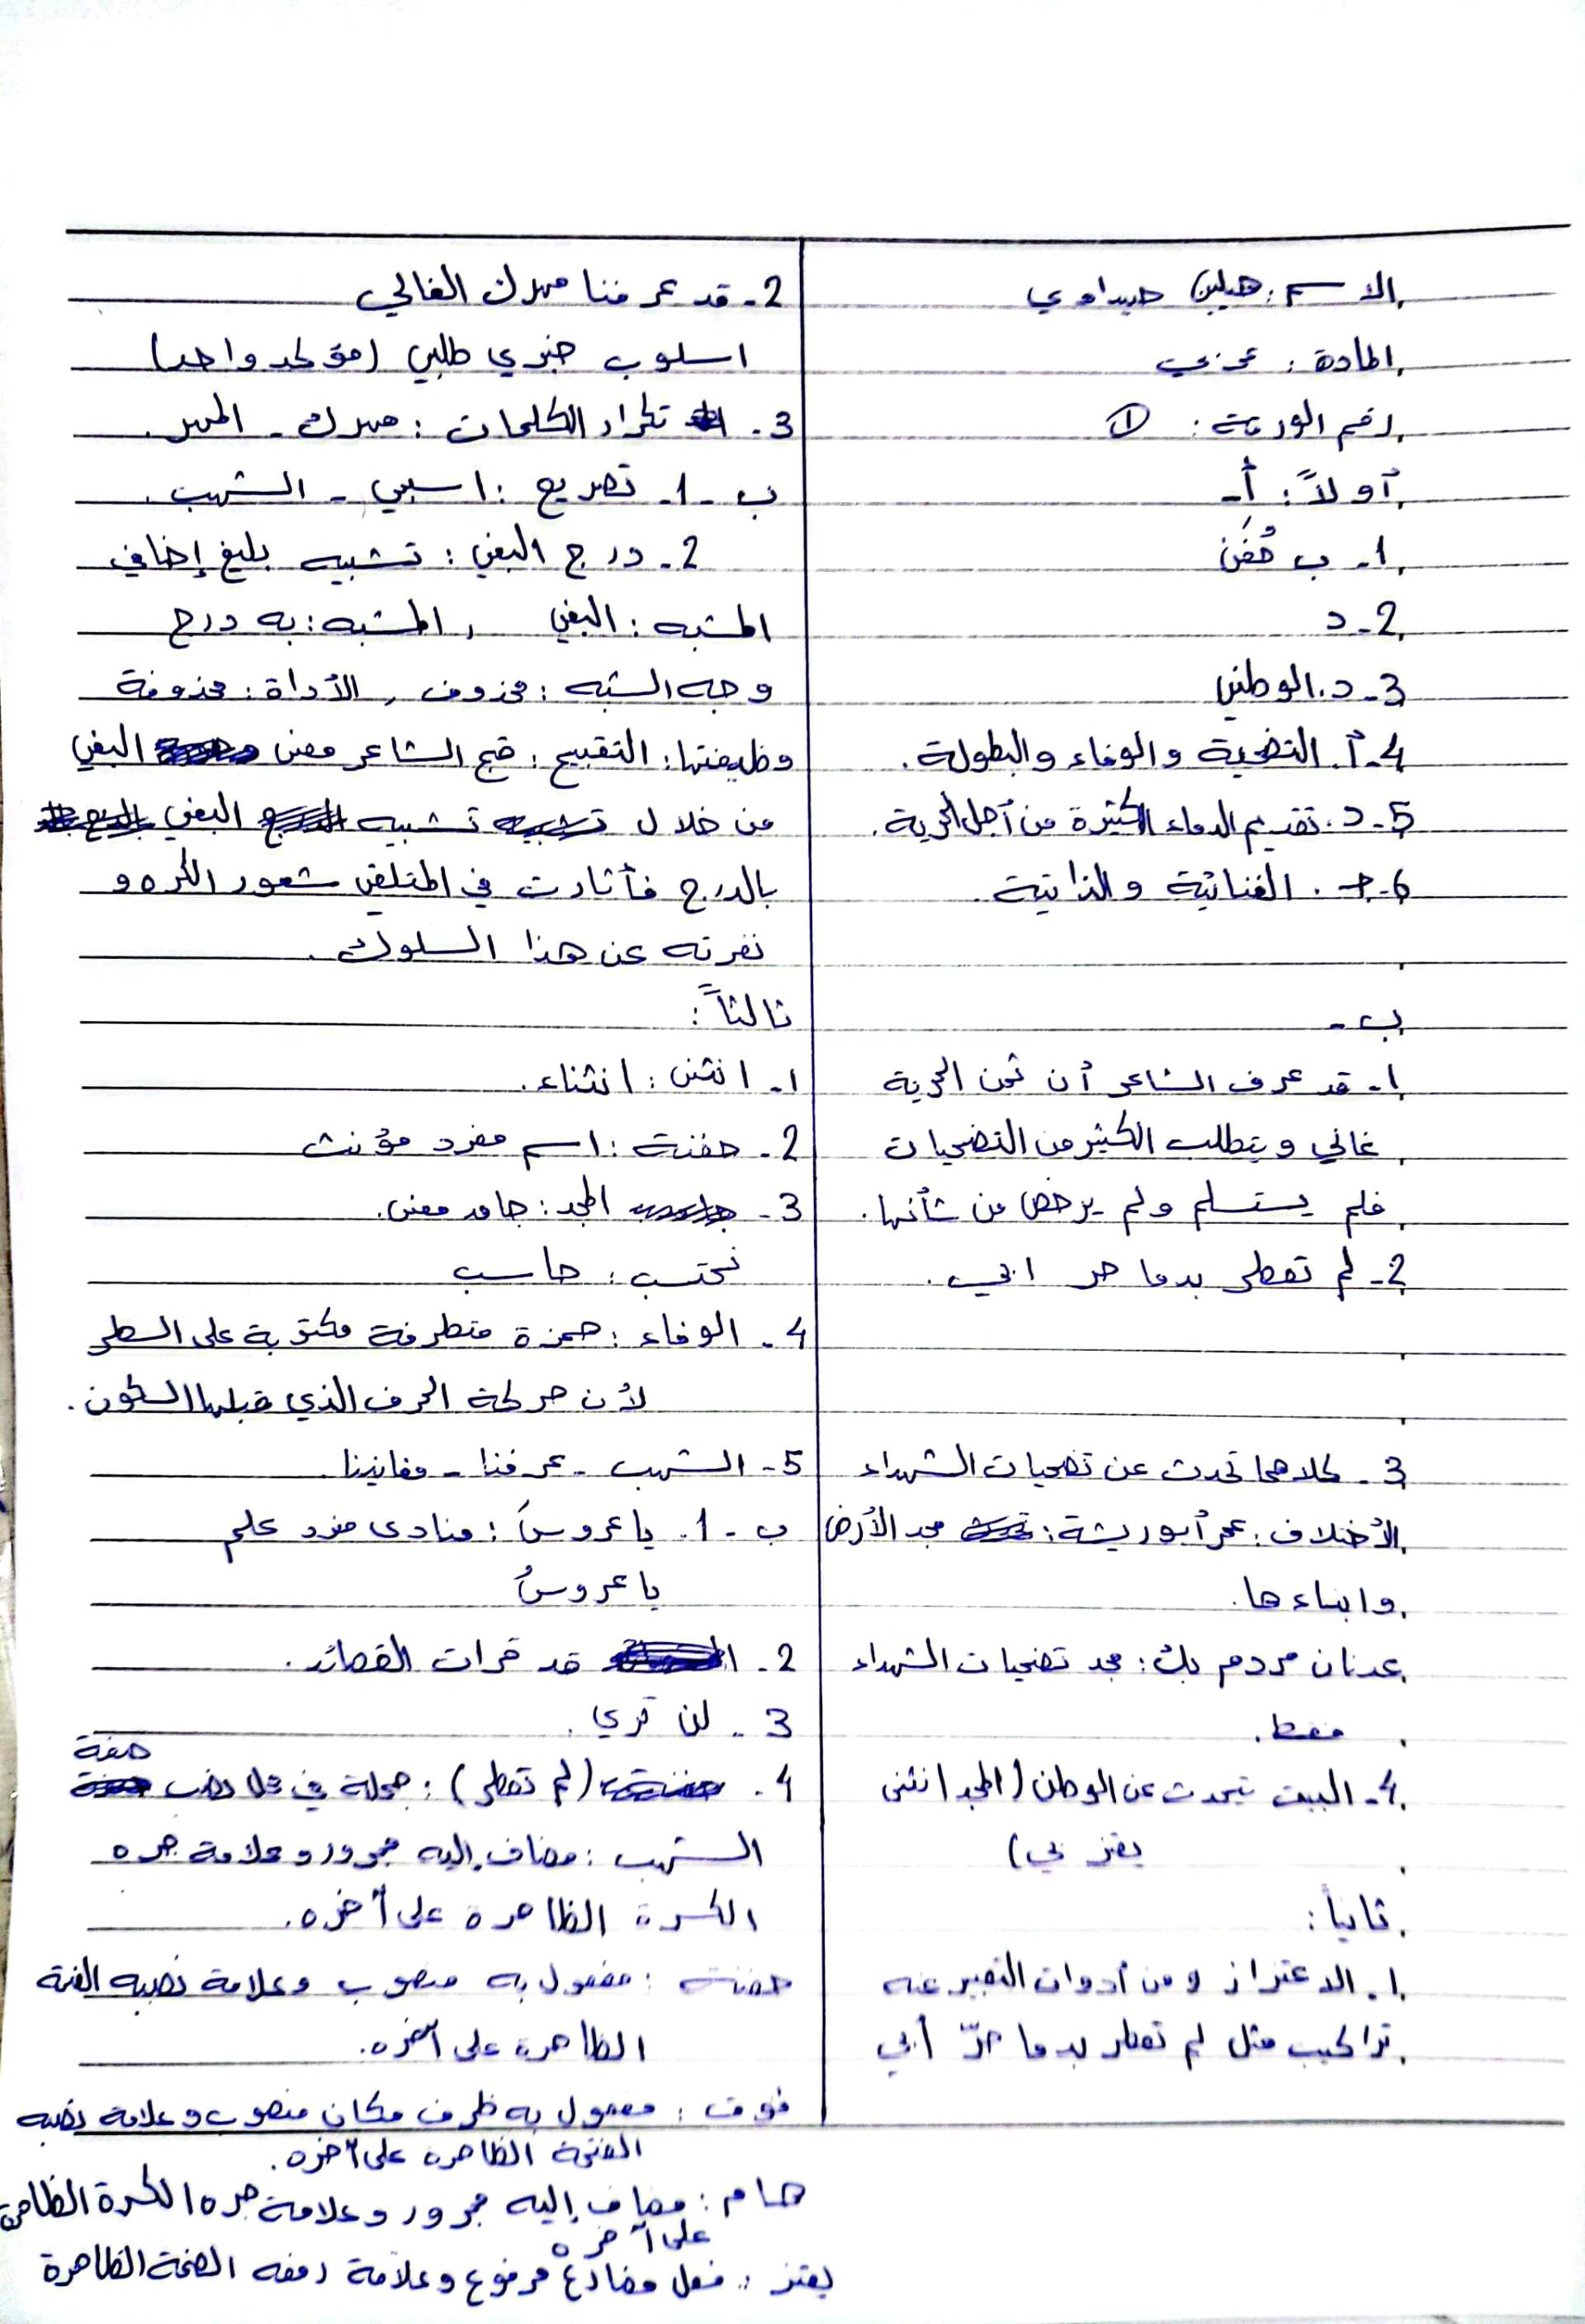 الاسم: هيلين صيداوي
المادة: عربي
رقم الورقة: ①
أولاً: أ-
1- ب حُفَن
2- د
3- د. الوطني
4- أ. التضحية والوفاء والبطولة.
5- د. تقديم الدماء الكثيرة من أجل الحرية.
6- ج. الغنائية والذاتية.
ب-
1- قد عرف الشاعر أن ثمن الحرية
غالي ويتطلب الكثير من التضحيات
فلم يستسلم ولم يرخص من شأنها.
2- لم تعطر بدما حر ابي.
3- كلاهما تحدث عن تضحيات الشهداء
الأختلاف: عمر أبو ريشة: مجد الأرض
وابناءها.
عدنان مردم بك: مجد تضحيات الشهداء
فقط.
4- البيت يتحدث عن الوطن (المجد انثنى
يعتز بي)
ثانياً:
1. الاعتزاز ومن أدوات التعبير عنه
تراكيب مثل لم تعطر بدما حرّ أبي
2- قد عرفنا مهرك الغالي
اسلوب خبري طلبي (مؤكد واحد)
3- تكرار الكلمات: مهرك - المهر.
ب-1- تصريع: اسبي - الشهب.
2- درج البغي: تشبيه بليغ إضافي
المشبه: البغي , المشبه: به درج
وجه الشبه: محذوف, الأداة: محذوفة
وظيفتها: التقبيح: قبح الشاعر معنى البغي
من خلال تشبيه البغي
بالدرج فأثارت في المتلقي شعور الكره و
نفرته عن هذا السلوك.
ثالثاً:
1- انثنى: انثناء.
2- حفنة: اسم مفرد مؤنث
3- المجد: جامد معنى.
نحتسب: حاسب
4- الوفاء: همزة متطرفة مكتوبة على السطر
لأن حركة الحرف الذي قبلها السكون.
5- الشهب - عرفنا - مغانينا
ب-1- يا عروسَ: منادى مفرد علم
يا عروسُ
2- قد قرات القصائد.
3- لن تري.
4- (لم تعطر): جملة في محل نصب صفة
الشهب: مضاف إليه مجرور وعلامة جره
الكسرة الظاهرة على آخره.
حفنة: مفعول به منصوب وعلامة نصبه الفتحة
الظاهرة على آخره.
فوق: مفعول به ظرف مكان منصوب وعلامة نصبه
الفتحة الظاهرة على آخره.
هام: مضاف إليه مجرور وعلامة جره الكسرة الظاهرة
على آخره
يعتز: فعل مضارع مرفوع وعلامة رفعه الضمة الظاهرة